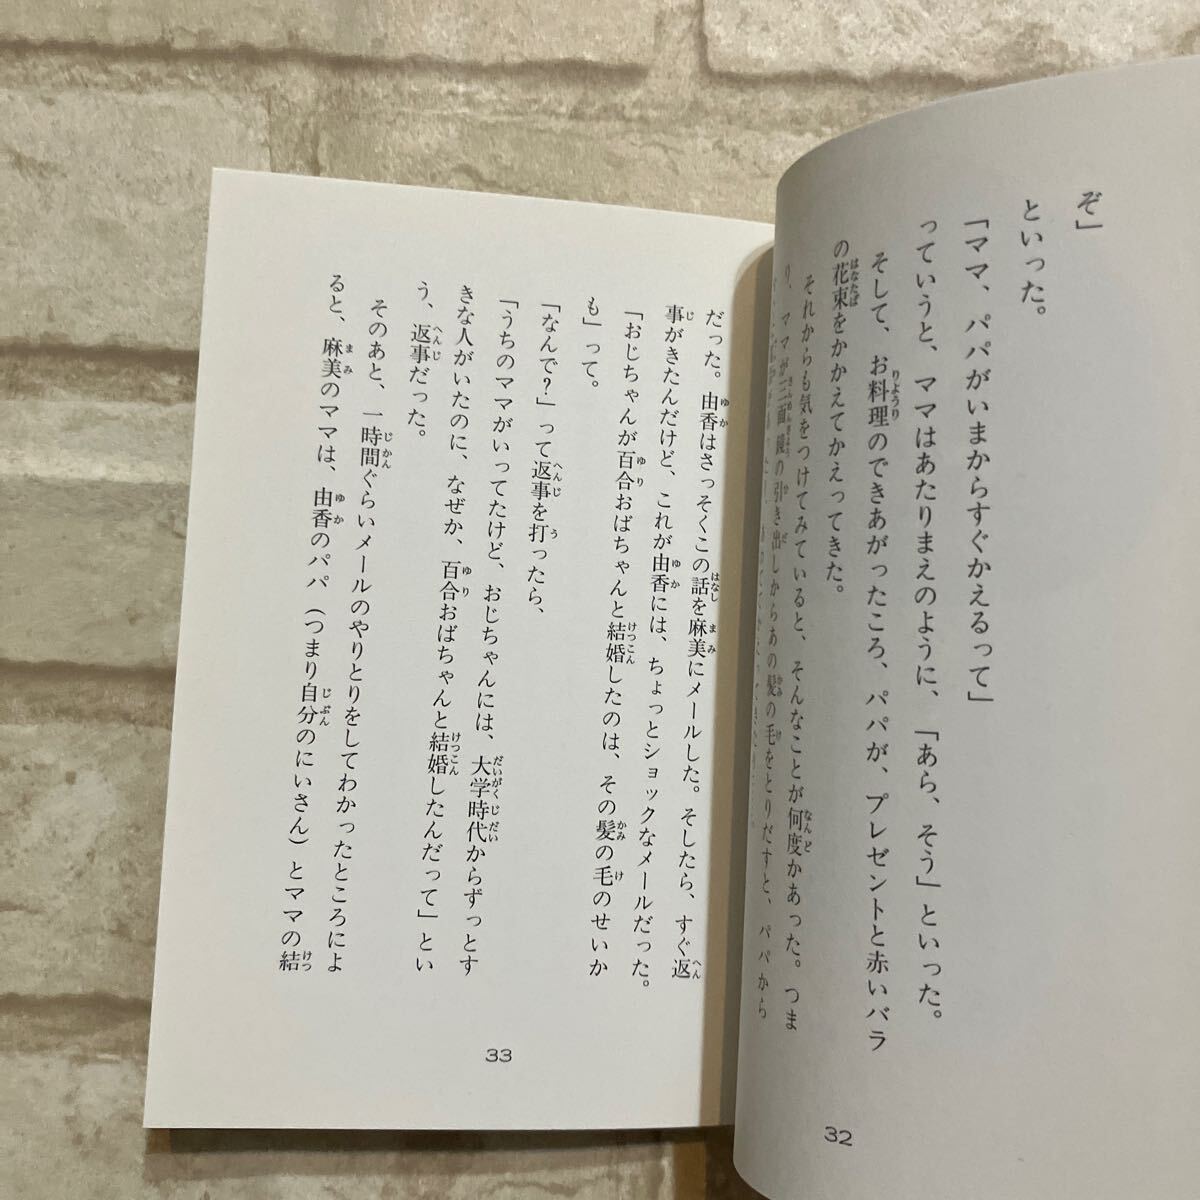 ぞ」
といった。
「ママ、パパがいまからすぐかえるって」
っていうと、ママはあたりまえのように、「あら、そう」といった。
そして、お料理のできあがったころ、パパが、プレゼントと赤いバラ
の花束をかかえてかえってきた。
それからも気をつけてみていると、そんなことが何度かあった。つま
り、ママが三面鏡の引き出しからあの髪の毛をとりだすと、パパから
32
だった。由香はさっそくこの話を麻美にメールした。そしたら、すぐ返
事がきたんだけど、これが由香には、ちょっとショックなメールだった。
「おじちゃんが百合おばちゃんと結婚したのは、その髪の毛のせいか
も」って。
「なんで？」って返事を打ったら、
「うちのママがいってたけど、おじちゃんには、大学時代からずっとす
きな人がいたのに、なぜか、百合おばちゃんと結婚したんだって」とい
う、返事だった。
そのあと、一時間ぐらいメールのやりとりをしてわかったところによ
ると、麻美のママは、由香のパパ（つまり自分のにいさん）とママの結
33